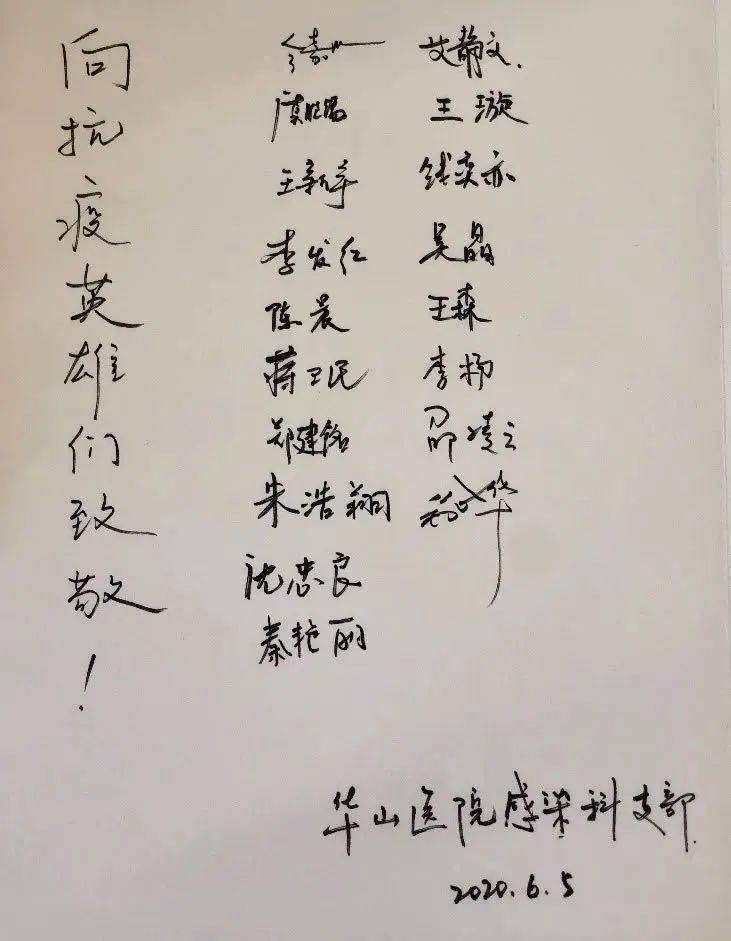 向抗疫英雄们致敬!
虞胜镭
王新宇
李发红
陈晨
蒋卫民
郑建铭
朱浩翔
沈忠良
秦艳丽
艾静文.
王璇
钱奕亦
吴晶
王森
李杨
邵凌云
华山医院感染科支部.
2020.6.5